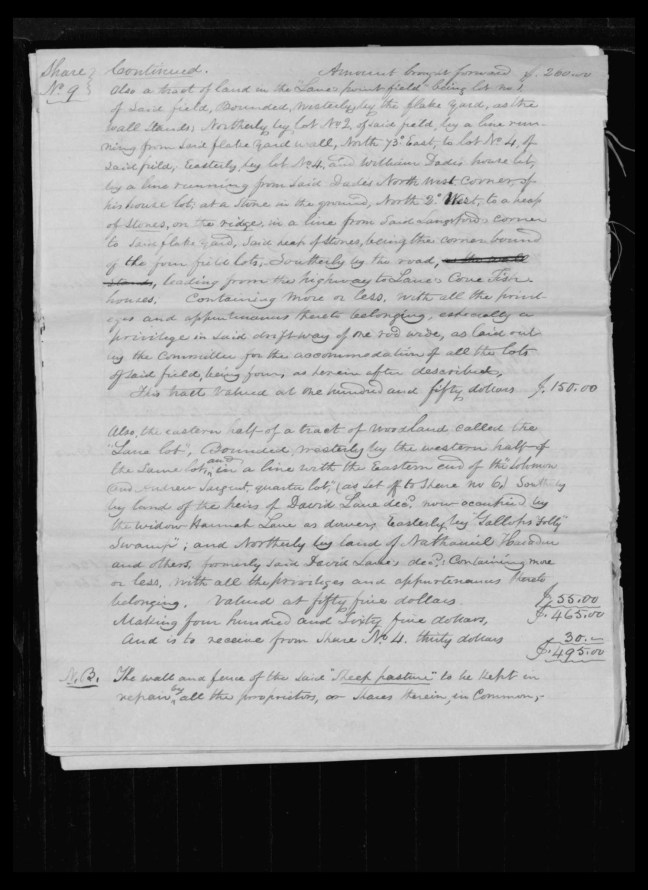 Share No. 9 } Continued. Amount brought forward $. 260.00
Also a tract of land in the "Lane's point field" being lot no 1
of said field, Bounded, Westerly, by the flake yard, as the
wall stands; Northerly, by lot No 2, of said field, by a line run-
ning from said flake yard wall, North 73° East, to lot No 4, of
said field, Easterly, by lot No 4, and William Dade's house lot,
by a line running from said Dade's North West Corner, of
his house lot, at a stone in the ground, North 2° West, to a heap
of stones, on the ridge, in a line from said Langsford's corner
to said flake yard, said heap of stones, being the corner bound
of the four field lots; Southerly by the road,
leading from the highway to Lane's Cove Fish
houses. Containing more or less, with all the privil-
eges and appurtenances thereto belonging, especially a
privilege in said drift way of one rod wide, as laid out
by the Committee for the accommodation of all the lots
of said field, being four, as herein after described,
This tract Valued at one hundred and fifty dollars $. 150.00
Also, the eastern half of a tract of woodland called the
"Lane lot", Bounded, westerly by the western half of
the same lot, and in a line with the Eastern end of the Solomon
and Andrew Sargent, quarter lot, (as set off to Share no 6,) Southerly
by land of the heirs of David Lane decd. now occupied by
the widow Hannah Lane as dower, Easterly, by "Gallops Folly
Swamp"; and Northerly by land of Nathaniel
and others, formerly said David Lane's decd.; Containing more
or less, with all the privileges and appurtenances thereto
belonging. Valued at fifty five dollars. $. 55.00
Making four hundred and Sixty five dollars, $. 465.00
And is to receive from Share No. 4. thirty dollars 30.–
$. 495.00
N.B. The wall and fence of the said "Sheep pasture" to be kept in
repair, by all the proprietors, or shares therein, in Common,-